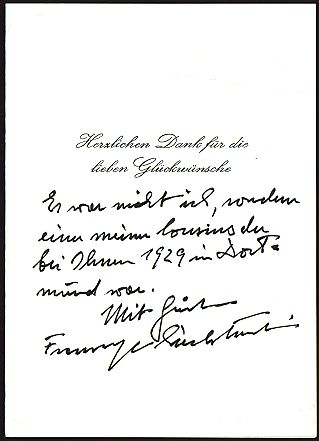 Herzlichen Dank für die
lieben Glückwünsche
Es war nicht ich, sondern
einer meiner Cousins der
bei Ihnen 1929 in Dort=
mund war.
Mit